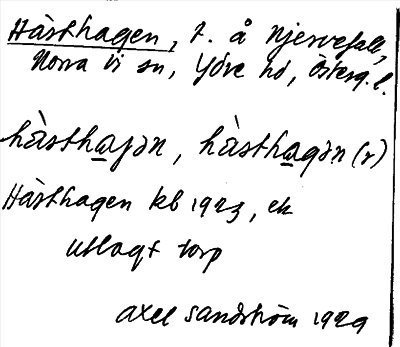 Hästhagen, t. å Njervefall,
Norra Vi sn, Ydre hd, Österg. l.
hàsthaɲən, hàsthagən (r)
Hästhagen kb 1923, ek
utlagt torp
Axel Sandström 1929